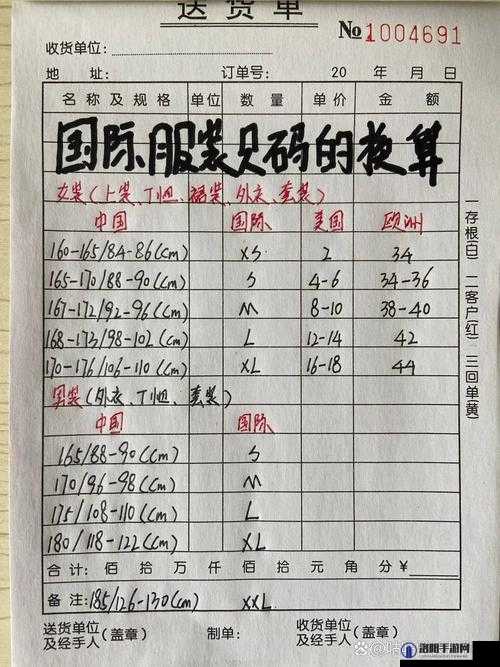 送货单
№1004691
收货单位：
地 址： 订单号： 20 年 月 日
名称及规格 单位 数量 单价 金额
国际服装尺码的换算
女装(上装、T恤、裙装、外衣、套装)
中国 国际 美国 欧洲
160-165/84-86(cm) XS 2 34
165-170/88-90(cm) S 4-6 34-36
167-172/92-96(cm) M 8-10 38-40
168-173/98-102(cm) L 12-14 42
170-176/106-110(cm) XL 16-18 44
男装(外衣、T恤、套装)
中国 国际
165/88-90(cm) S
170/96-98(cm) M
175/108-110(cm) L
180/118-122(cm) XL
合计： 佰 拾 万 仟 佰 拾 元 角 分 ¥
备注：185/126-130(cm) XXL
送货单位及经手人(盖章) 制单： 收货单位及经手人
一存根(白) 二客户(红) 三回单(黄)
洛阳手游网